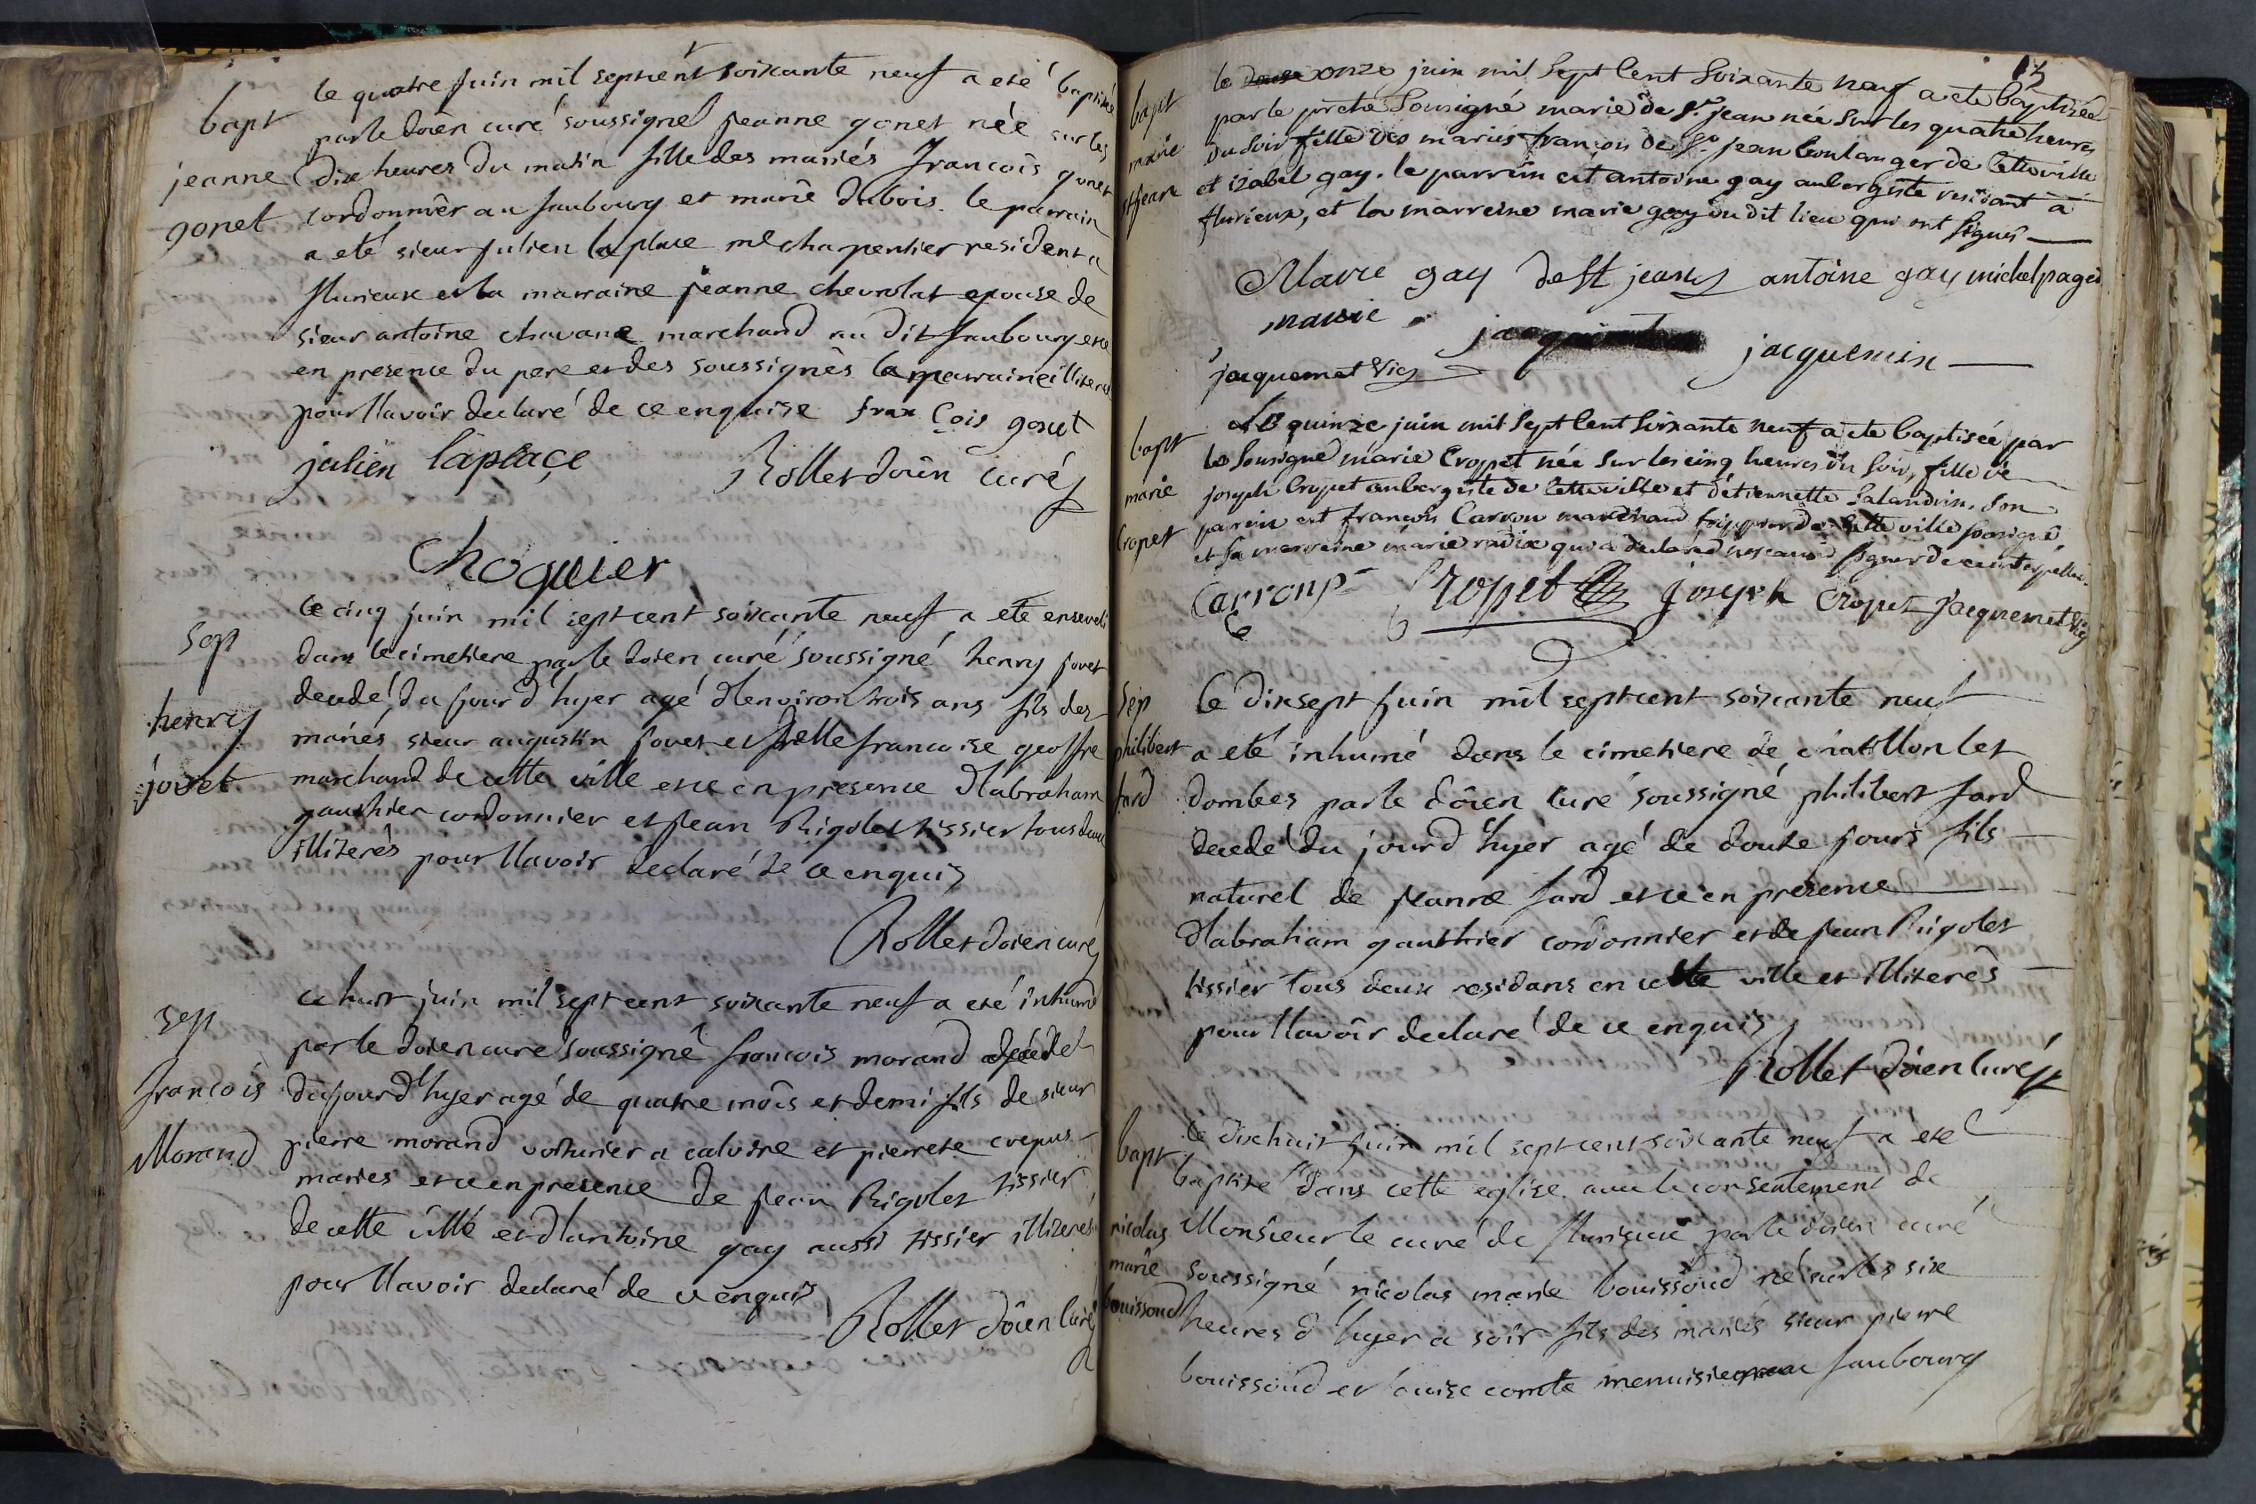 le quatre juin mil sept cent soixante neuf a eté baptisée
bapt
par le doien curé soussigné jeanne gonet née sur les
jeanne
dix heures du matin fille des mariés francois gonet
gonet
cordonnier au faubourg et marie dubois. le parrain
a eté sieur julien laplace me charpentier resident a
flurieux et la marraine jeanne chevrolat epouse de
sieur antoine chavane marchand au dit faubourg et ce
en presence du pere et des soussignés la marraine illiteree
pour l'lavoir declaré de ce enquise francois gonet
julien laplaçe
Rollet doien curé
Choquier
sep
le cinq juin mil sept cent soixante neuf a eté enseveli
dans le cimetiere par le doien curé soussigné henry jovet
henry
decedé du jourd'hyer agé d'lenviron trois ans fils des
jovet
mariés sieur augustin jovet et delle francoise geoffre
marchand de cette ville et ce en presence d'labraham
gauthier cordonnier et jean Rigolet tissier tous deux
illiterés pour l'lavoir declaré de ce enquis
Rollet doien curé
sep
le huit juin mil sept cent soixante neuf a eté inhumé
par le doien curé soussigné francois morand decedé
francois
du jourd'hyer agé de quatre mois et demi fils de sieur
Morand
pierre morand voiturier a caluire et pierrete crepus
mariés et ce en presence de jean Rigolet tissier
de cette ville et d'lantoine gay aussi tissier illiterés
pour l'lavoir declaré de ce enquis
Rollet doien curé
13
bapt
le douze onze juin mil sept cent soixante neuf a eté baptisée
marie
par le prêtre sousigné marie de St jean née sur les quatre heures
st jean
du soir fille des mariés françois de St jean boulanger de cette ville
et izabel gay. le parrein est antoine gay aubergiste residant à
flurieux, et la marreine marie gay du dit lieu qui ont signé
Marie gay de St jean antoine gay michel pages
marie
jacquemet vic jacquemin
bapt
Le quinze juin mil sept cent soixante neuf a eté baptisée par
marie
le sousigné marie Cropet née sur les cinq heures du soir, fille de
Cropet
joseph Cropet aubergiste de cette ville et d'étiennette salandrin. son
parein est françois Carron marchand frippier de cette ville sousigné
et sa marreine marie radix qui a declaré ne scavoir signer de ce interpellée.
Carron pr Cropet joseph Cropet jacquemet vic
sep
philibert
fard
le dixsept juin mil sept cent soixante neuf
a eté inhumé dans le cimetiere de chatillon les
dombes par le doien curé soussigné philibert fard
decedé du jourd'hyer agé de douze jours fils
naturel de jeanne fard et ce en presence
d'labraham gauthier cordonnier et de jean Rigolet
tissier tous deux residans en cette ville et illiterés
pour l'lavoir declaré de ce enquis
Rollet doien curé
bapt
nicolas
marie
bouissoud
le dixhuit juin mil sept cent soixante neuf a eté
baptisé dans cette eglise avec le consentement de
Monsieur le curé de flurieux par le doien curé
soussigné nicolas marie bouissoud né sur les six
heures d'hyer a soir fils des mariés sieur pierre
bouissoud et louise comte menuisier au faubourg